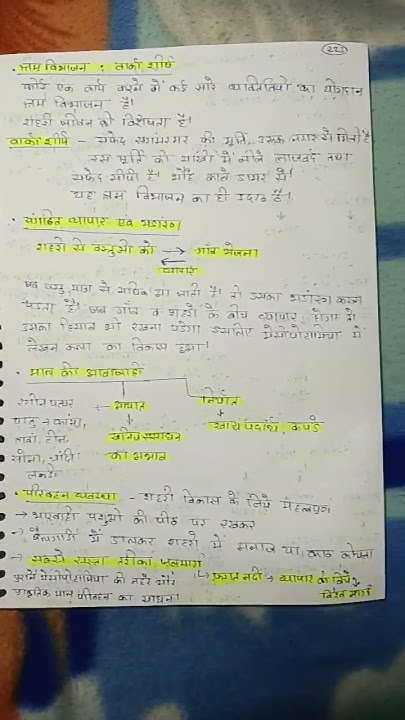 223
श्रम विभाजन : वार्का शीर्ष
कोई एक कार्य करने में कई सारे व्यक्तियों का योगदान
श्रम विभाजन है।
शहरी जीवन की विशेषता है।
वार्का शीर्ष - सफेद संगमरमर की मूर्ति, उरुक नगर से मिली है
इस मूर्ति की आंखों में नीले लाजवर्द तथा
सफेद सीपी है। भौंहे काले डामर से।
यह श्रम विभाजन का ही उदा० है।
संगठित व्यापार एवं भंडारण
शहरों से वस्तुओं को → गाँव भेजना
व्यापार
जब वस्तु मात्रा से अधिक आ जाती है। तो उसका भंडारण करना
पड़ता है। जब गाँव व शहरों के बीच व्यापार होगा तो
उसका हिसाब भी रखना पड़ेगा इसलिए मेसोपोटामिया में
लेखन कला का विकास हुआ।
माल की आवाजाही
रंगीन पत्थर ← आयात निर्यात
धातु → कांसा, खाद्य पदार्थ, कपड़े
तांबा, टीन, खनिज संसाधन
सोना, चाँदी: का अभाव
लकड़ी
परिवहन व्यवस्था - शहरी विकास के लिये महत्वपूर्ण
→ भारवाही पशुओं की पीठ पर रखकर
→ बैलगाड़ी में डालकर शहरों में अनाज या काठ कोयला
→ सबसे सस्ता तरीका, जलमार्ग
पुराने मेसोपोटामिया की नहरें और ↳ फ़रात नदी → व्यापार के लिये
प्राकृतिक धाराएं परिवहन का साधन। विश्व मार्ग